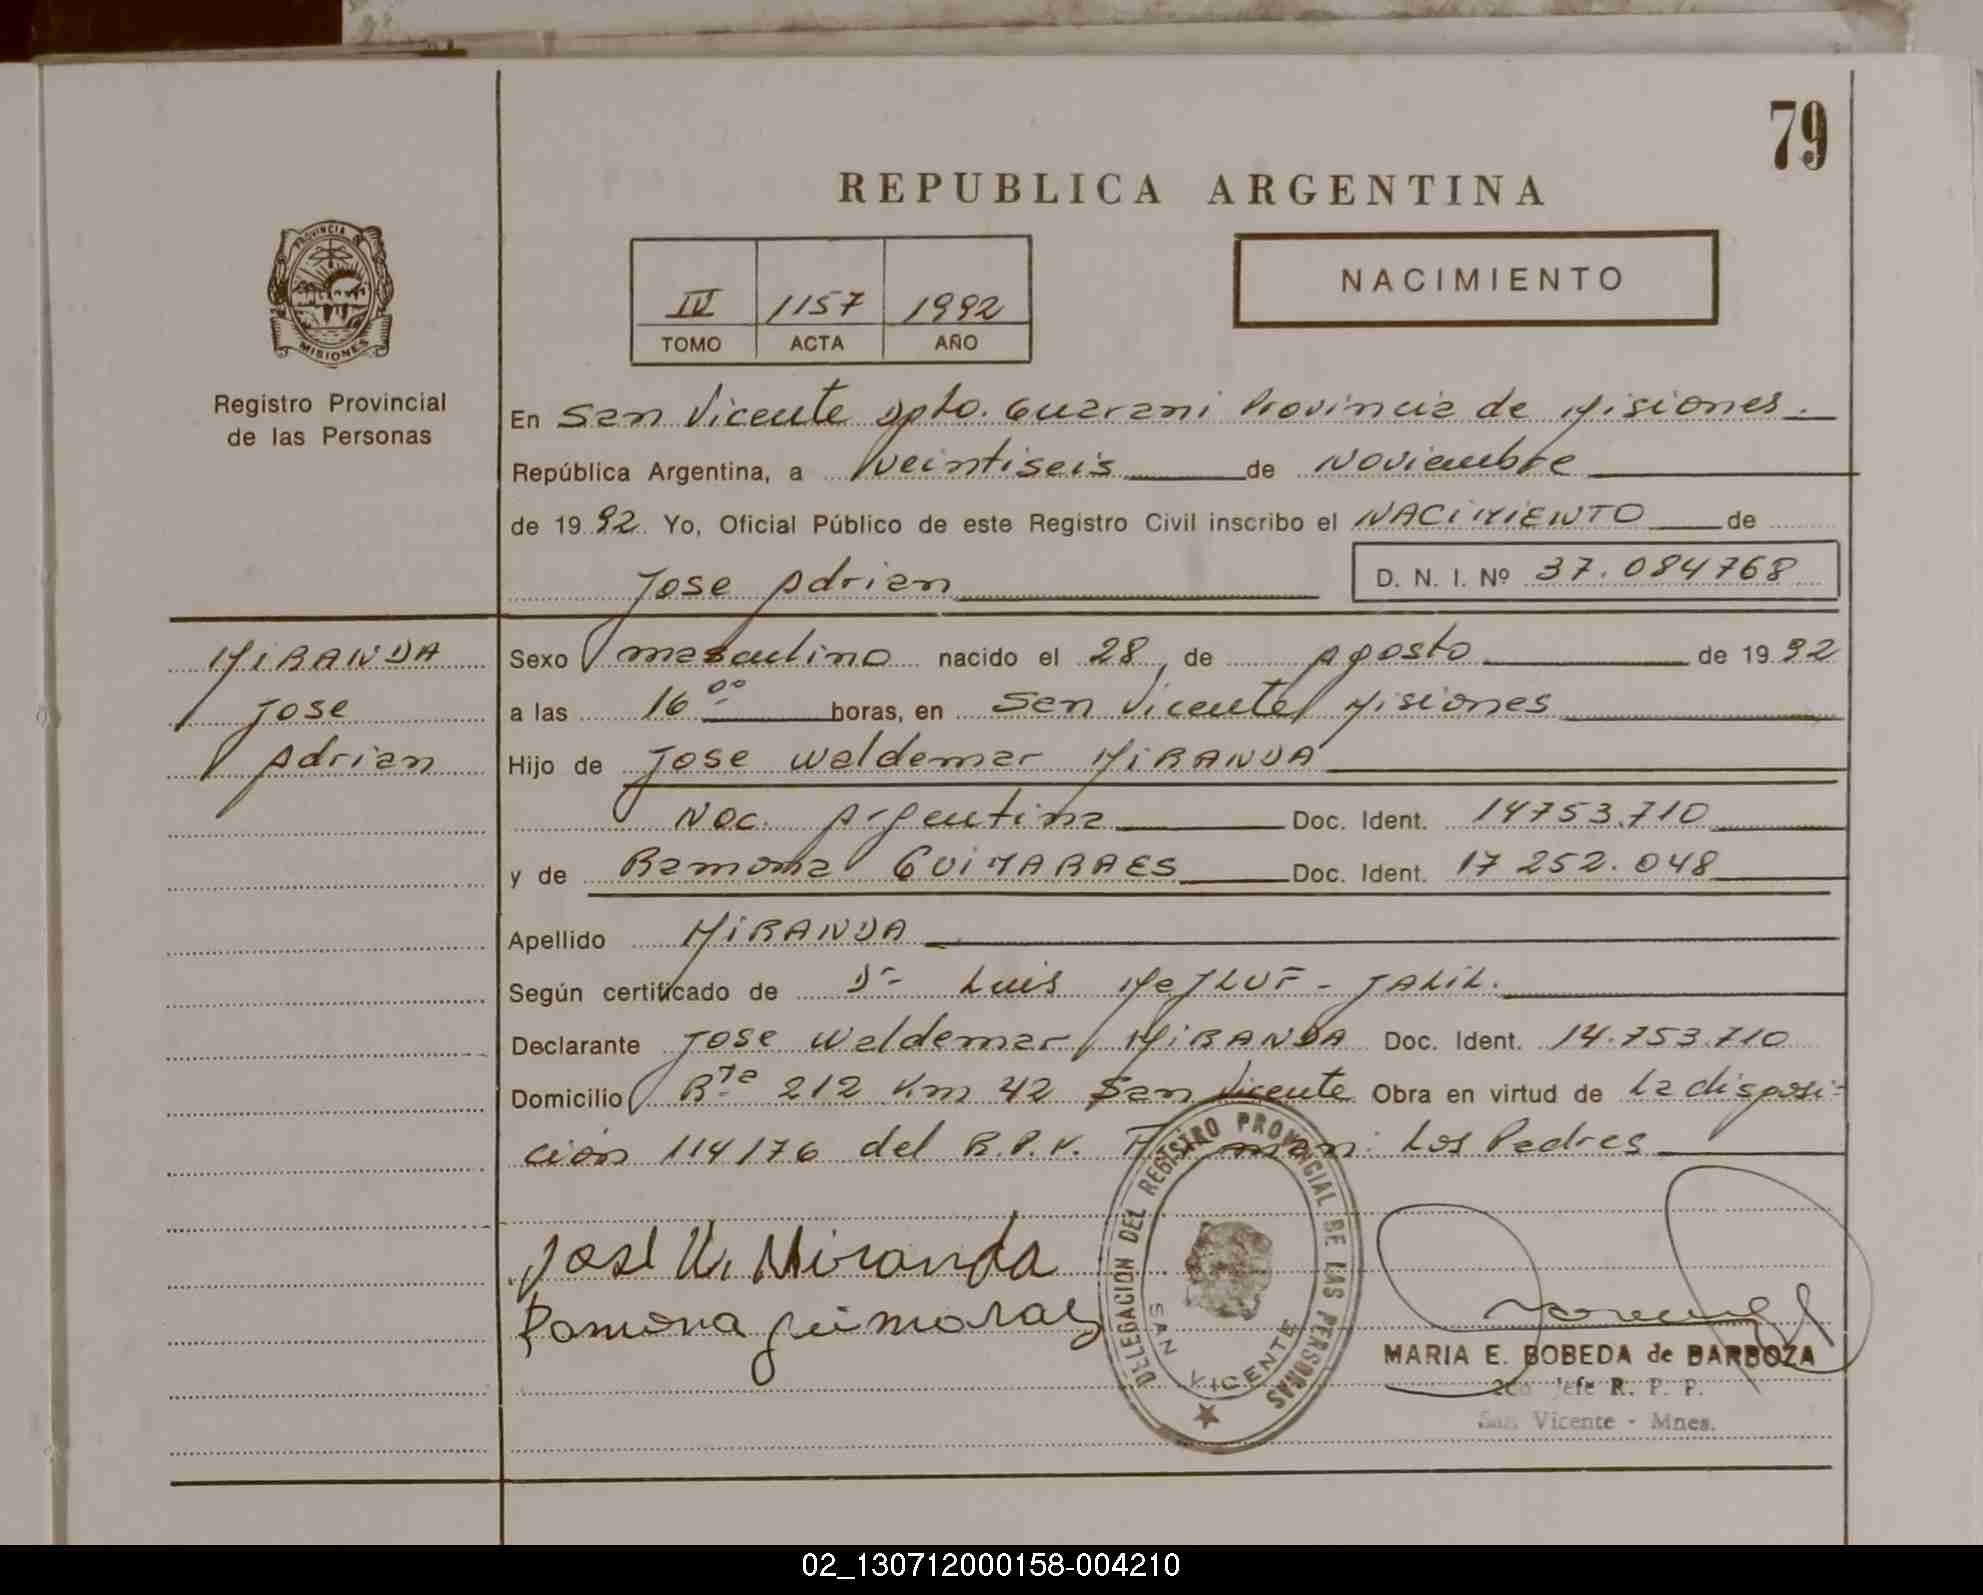 79
REPUBLICA ARGENTINA
PROVINCIA DE
MISIONES
Registro Provincial
de las Personas
IV 1157 1992
TOMO ACTA AÑO
NACIMIENTO
En San Vicente Dpto. Guarani Provincia de Misiones.
República Argentina, a veintiseis de Noviembre
de 19 92. Yo, Oficial Público de este Registro Civil inscribo el NACIMIENTO de
Jose Adrian D. N. I. Nº 37.084768
MIRANDA
Jose
Adrian
Sexo masculino nacido el 28 de Agosto de 19 92
a las 16 00 horas, en San Vicente Misiones
Hijo de Jose Waldemar MIRANDA
Nac. Argentina Doc. Ident. 14753.710
y de Ramona GUIMARAES Doc. Ident. 17 252.048
Apellido MIRANDA
Según certificado de Dr Luis MeJLUF - JALIL.
Declarante Jose Waldemar MIRANDA Doc. Ident. 14.753.710
Domicilio Rta 212 Km 42 San Vicente Obra en virtud de La disposi-
ción 114/76 del R.P.V. Los Padres
José W. Miranda
Ramona guimaraes
DELEGACION DEL REGISTRO PROVINCIAL DE LAS PERSONAS
SAN VICENTE
MARIA E. BOBEDA de BARBOZA
2do Jefe R. P. P.
San Vicente - Mnes.
02_130712000158-004210